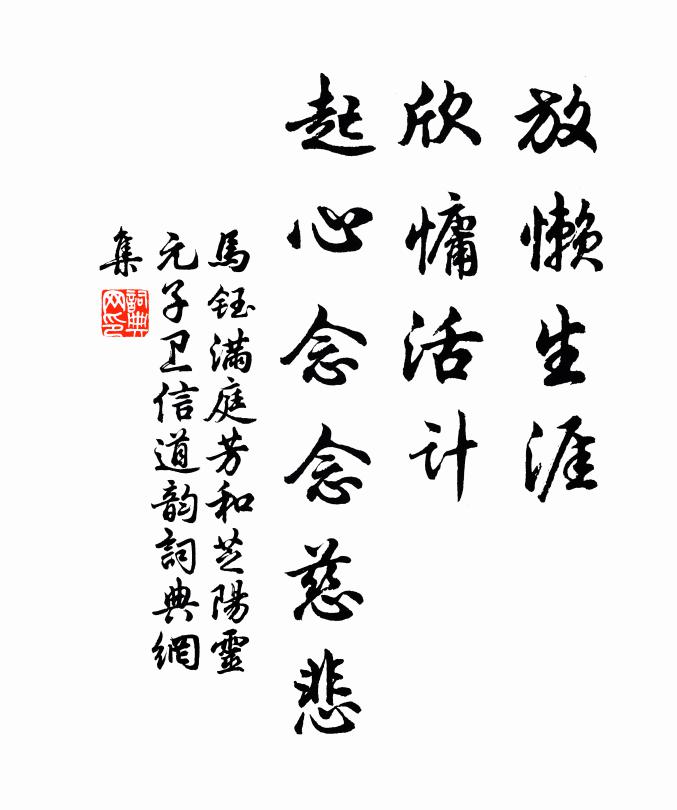 放懒生涯
欣慵活计
起心念念慈悲
馬鈺滿庭芳和芝陽靈
元子卫信道韵詞典網
集
詞典
网印